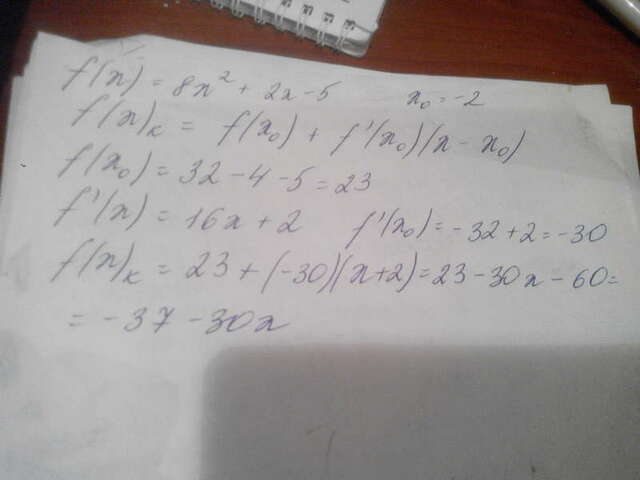 f(x) = 8x² + 2x - 5    x₀ = -2
f(x)ₖ = f(x₀) + f'(x₀)(x - x₀)
f(x₀) = 32 - 4 - 5 = 23
f'(x) = 16x + 2    f'(x₀) = -32 + 2 = -30
f(x)ₖ = 23 + (-30)(x+2) = 23 - 30x - 60 =
= -37 - 30x